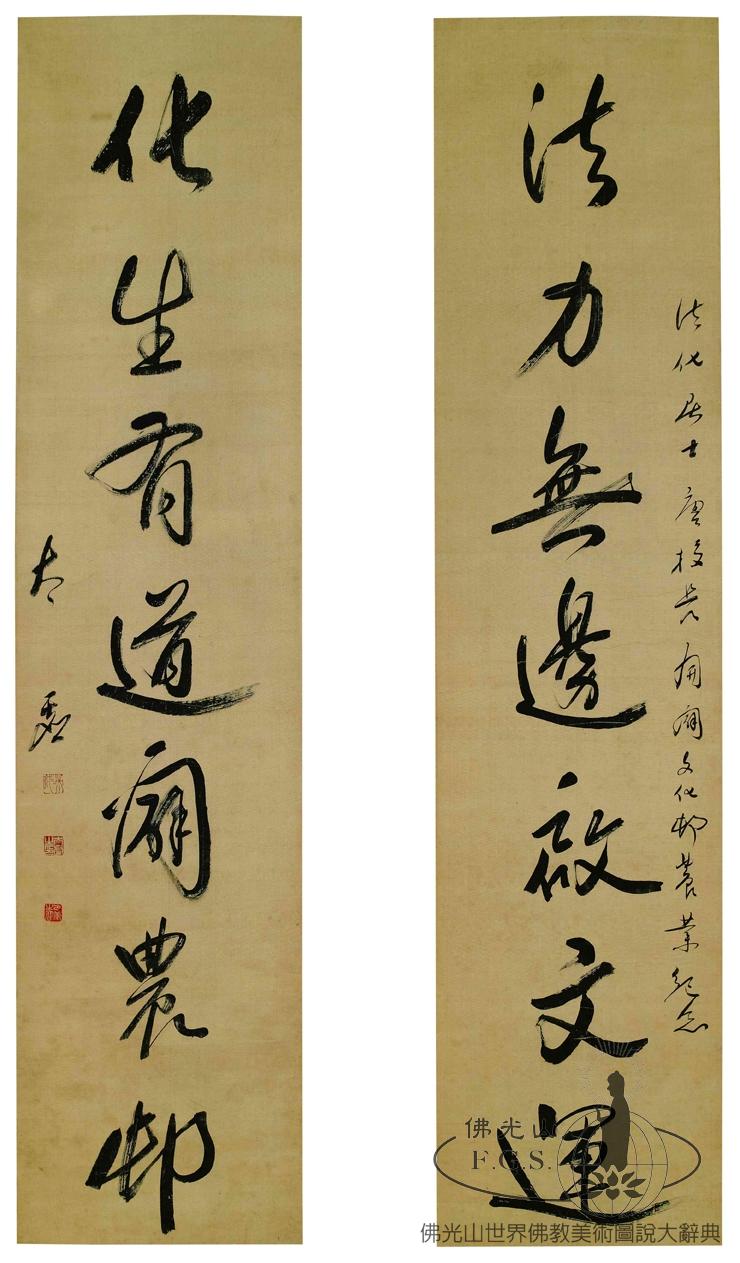 法化居士唐校長開闢文化邨農業紀念
法力無邊啟文運
化生有道闢農邨
太虛
佛光山
F.G.S.
佛光山世界佛教美術圖說大辭典